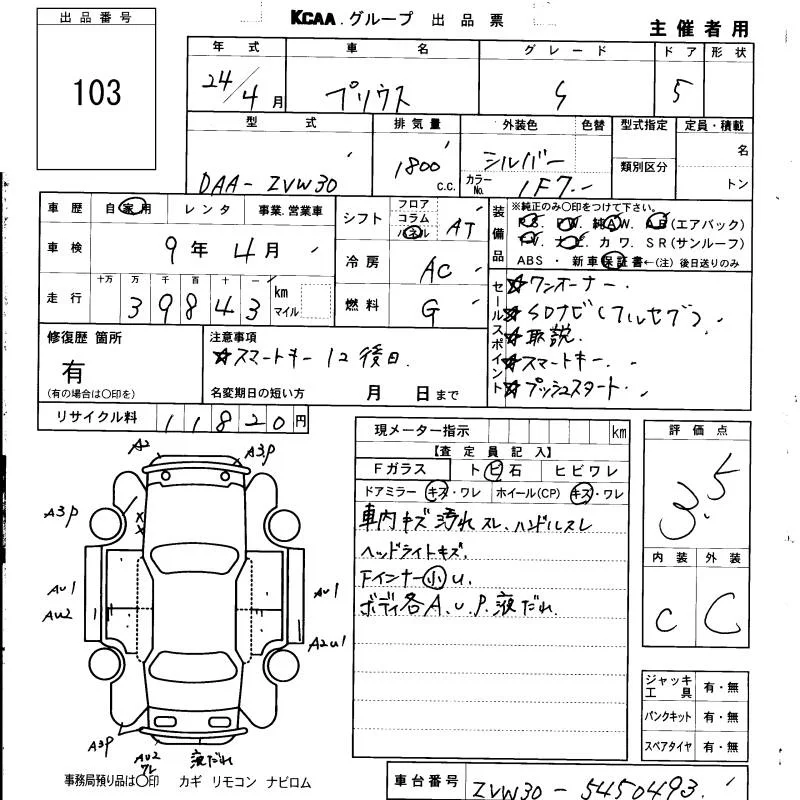 出品番号
103
KCAA.グループ 出品票
主催者用
年式 車名 グレード ドア 形状
24/4月 プリウス S 5
型式 排気量 外装色 色替 型式指定 定員・積載
DAA-ZVW30 1800 C.C. シルバー カラーNo. 1F7 類別区分 名 トン
車歴 自家用 レンタ 事業.営業車
シフト フロア コラム パネル AT
装備品 ※純正のみ○印をつけて下さい。
P.S. P.W 純A.W A.B(エアバック)
T.V ナビ カワ S R(サンルーフ)
ABS ・ 新車保証書←(注)後日送りのみ
車検 9年4月
冷房 AC
走行 十万 万 千 百 十 一
39843 km マイル
燃料 G
セールスポイント
☆ワンオーナー.
☆SDナビ(フルセグ).
☆取説.
☆スマートキー.
☆プッシュスタート.
修復歴 箇所
有
(有の場合は○印を)
注意事項
☆スマートキー12後日.
名変期日の短い方 月 日まで
リサイクル料 11820円
現メーター指示 km
【査定員記入】
Fガラス トビ石 ヒビワレ
ドアミラー キズ・ワレ ホイール(CP) キズ・ワレ
車内キズ汚れスレ、ハンドルスレ
ヘッドライトキズ.
Fインナー小U.
ボディ各A.U.P.液だれ.
評価点
3.5
内装 外装
C C
A2 A3P
A3P
XX
AU1
AU2
AU1
A2U1
A3P
AU2
ワレ
液だれ
ジャッキ工具 有・無
パンクキット 有・無
スペアタイヤ 有・無
事務局預り品は○印 カギ リモコン ナビロム
車台番号 ZVW30-5450493.